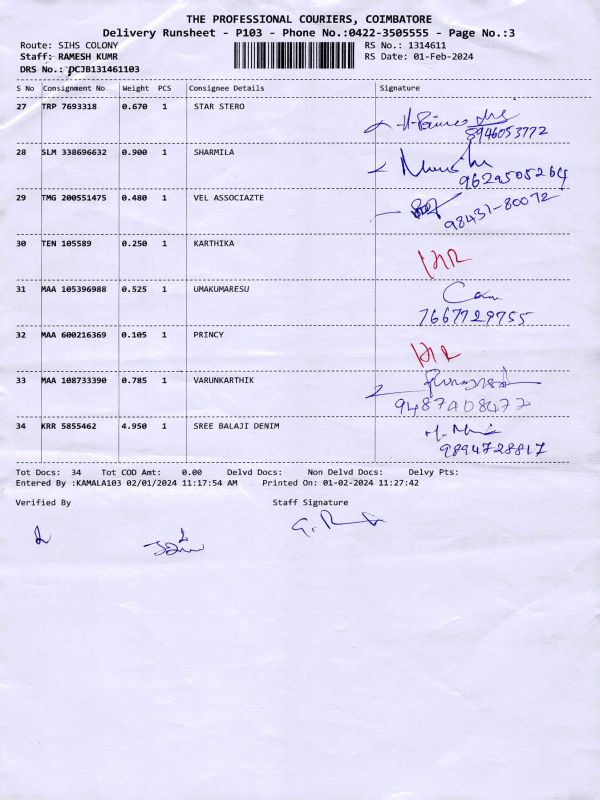 THE PROFESSIONAL COURIERS, COIMBATORE
Delivery Runsheet - P103 - Phone No.:0422-3505555 - Page No.:3
Route: SIHS COLONY RS No.: 1314611
Staff: RAMESH KUMR RS Date: 01-Feb-2024
DRS No.: PCJB131461103
S No Consignment No Weight PCS Consignee Details Signature
27 TRP 7693318 0.670 1 STAR STERO
8946053772
28 SLM 338696632 0.900 1 SHARMILA
9629505264
29 TMG 200551475 0.480 1 VEL ASSOCIAZTE
98431-80072
30 TEN 105589 0.250 1 KARTHIKA
31 MAA 105396988 0.525 1 UMAKUMARESU
7667729755
32 MAA 600216369 0.105 1 PRINCY
33 MAA 108733390 0.785 1 VARUNKARTHIK
34 KRR 5855462 4.950 1 SREE BALAJI DENIM
9894728817
Tot Docs: 34 Tot COD Amt: 0.00 Delvd Docs: Non Delvd Docs: Delvy Pts:
Entered By :KAMALA103 02/01/2024 11:17:54 AM Printed On: 01-02-2024 11:27:42
Verified By Staff Signature